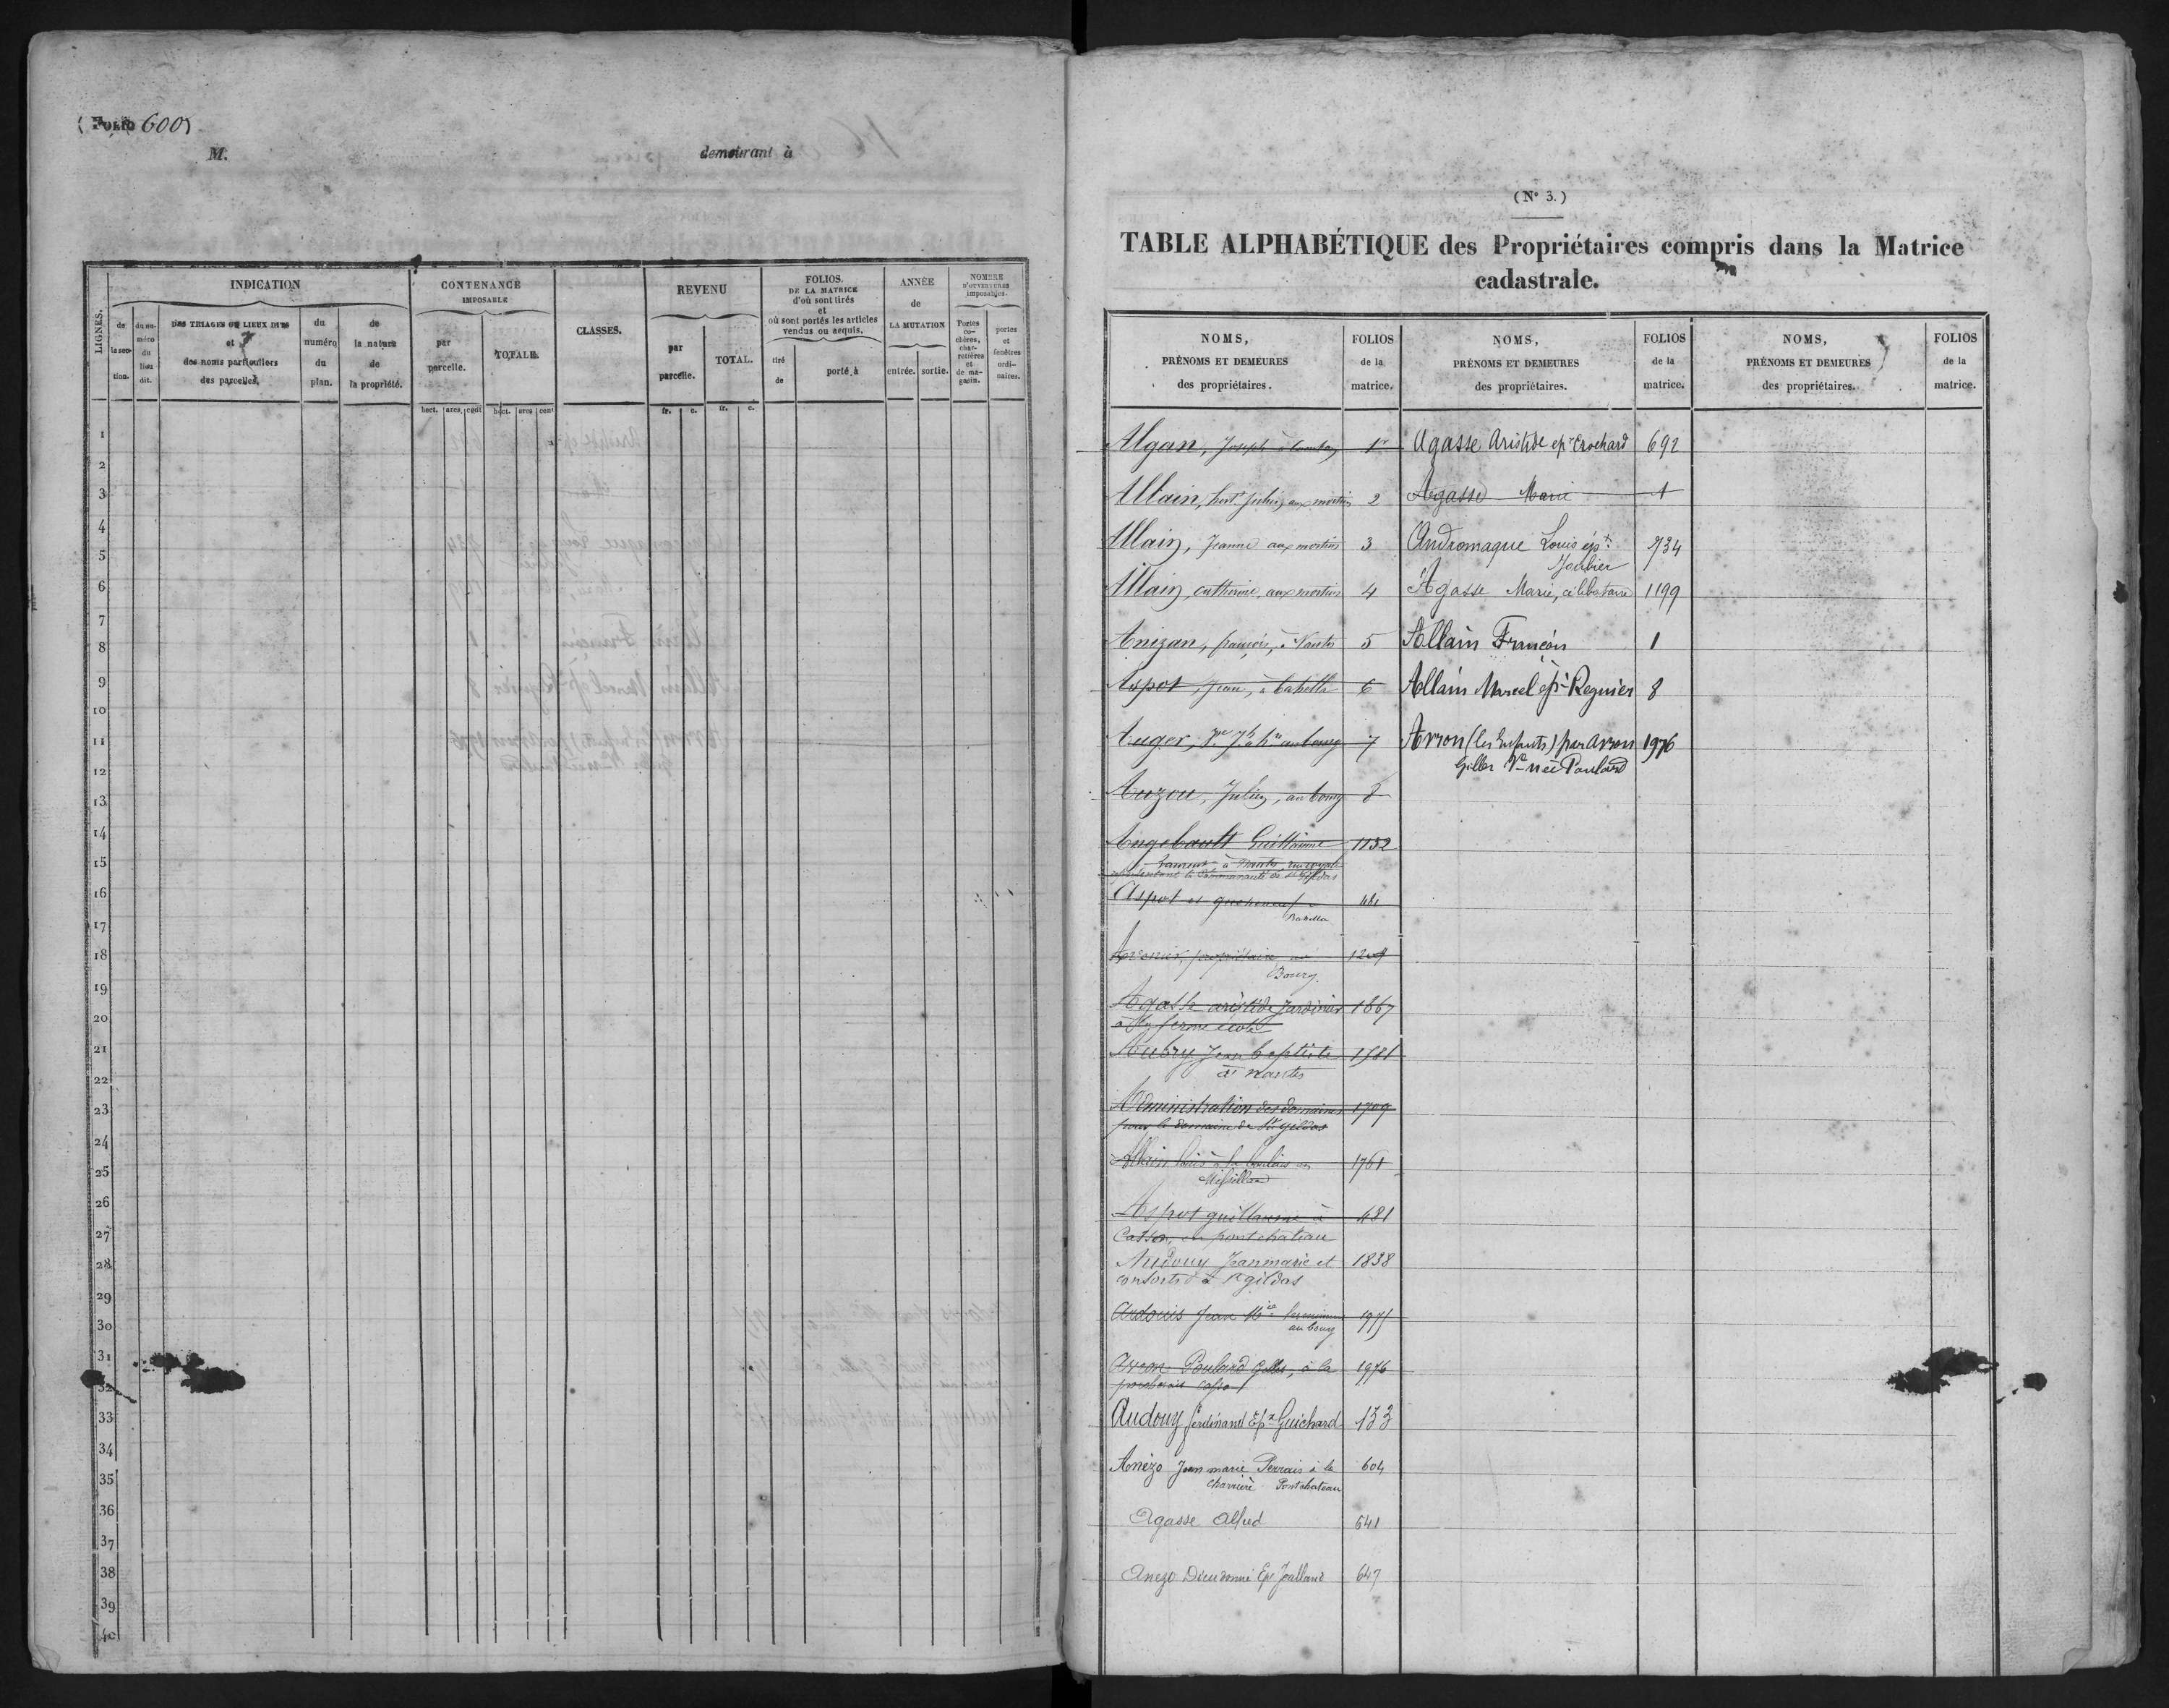 (FOLIO 600)
M. demeurant à
LIGNES.
INDICATION
de la section.
du numéro du lieu dit.
DES TRIAGES OU LIEUX DITS et des noms particuliers des parcelles.
du numéro du plan.
de la nature de la propriété.
CONTENANCE IMPOSABLE
par parcelle.
TOTALE.
hect. ares cent hect. ares cent
CLASSES.
REVENU
par parcelle.
TOTAL.
fr. c. fr. c.
FOLIOS.
DE LA MATRICE
d'où sont tirés
et
où sont portés les articles
vendus ou acquis.
tiré de
porté à
ANNÉE
de
LA MUTATION
entrée. sortie.
NOMBRE
D'OUVERTURES
imposables.
Portes cochères, charretières et de magasin.
portes et fenêtres ordinaires.
1
2
3
4
5
6
7
8
9
10
11
12
13
14
15
16
17
18
19
20
21
22
23
24
25
26
27
28
29
30
31
32
33
34
35
36
37
38
39
40
(N° 3.)
TABLE ALPHABÉTIQUE des Propriétaires compris dans la Matrice
cadastrale.
NOMS,
PRÉNOMS ET DEMEURES
des propriétaires.
FOLIOS
de la
matrice.
NOMS,
PRÉNOMS ET DEMEURES
des propriétaires.
FOLIOS
de la
matrice.
NOMS,
PRÉNOMS ET DEMEURES
des propriétaires.
FOLIOS
de la
matrice.
Algan, Joseph 1
Allain, Julien, aux mortiers 2
Allain, Jeanne aux mortiers 3
Allain, catherine, aux mortiers 4
Anizan, françois, à Nantes 5
Aspot, Jean, à babella 6
Auger, au bourg 7
Auzou, Julien, au bourg 8
Angebault Guillaume 1152
Laurent à Nantes, rue royale
représentant la communauté de St gildas
Aspot et 481
Babella
propriétaire au 1204
Bourg
Agasse aristide Jardinier 1867
à ferme école
Aubry Jean baptiste 1781
à Nantes
Administration des domaines 1709
pour le domaine de St gildas
Allain louis à la en 1761
Missillac
Aspot guillaume à 481
Casso, en pontchateau
Audouy Jeanmarie et 1838
consorts à St gildas
Audouis Jean Mie 1975
au bourg
Arron Poulard Gilles, à la 1976
Audouy ferdinand Epx Guichard 133
Anézo Jean marie Perrais à la 604
Charrière Pontchateau
Agasse Alfred 641
Anezo Dieudonné Epx Jalland 647
Agasse Aristide epx Crochard 692
Agasse Marie 1
Andromaque Louis épx 734
Jaulier
Agasse Marie, célibataire 1199
Allain François 1
Allain Marcel épx Regnier 8
Arron (les Enfants) par Arron 1976
Gilles Ve née Poulard